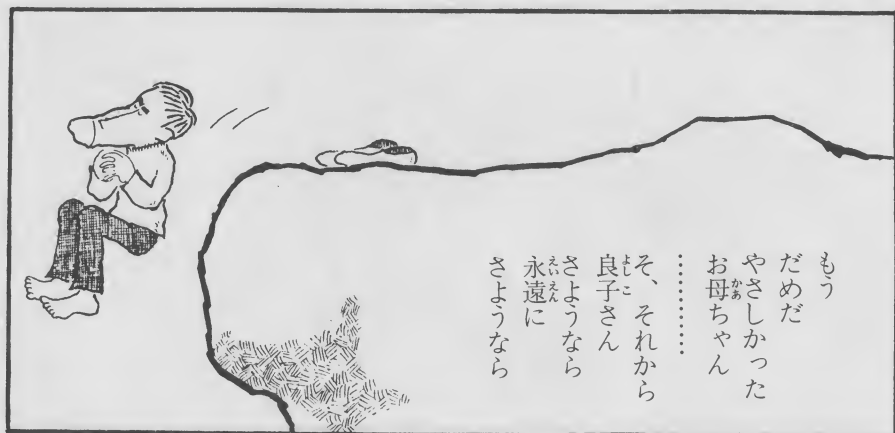 もう
だめだ
やさしかった
お母ちゃん
…………
そ、それから
良子さん
さようなら
永遠に
さようなら